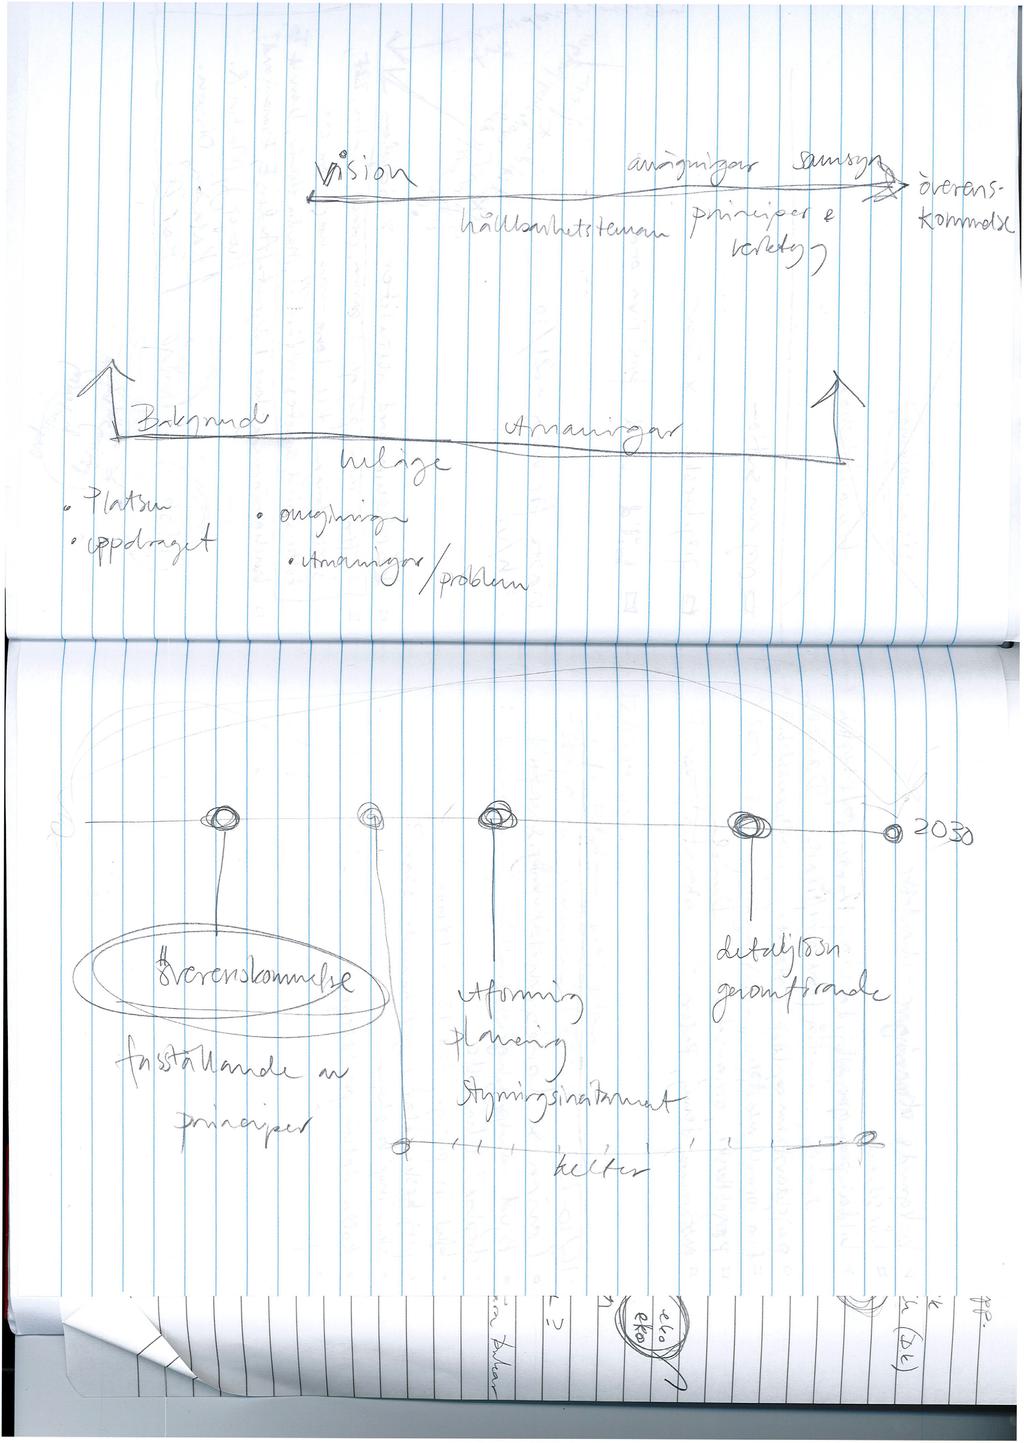 vision
samsyn
överens-
kommelse
hållbarhetsteman
principer &
verktyg
Bakgrund
Utmaningar
nuläge
• Platsen
• uppdraget
• omgivningen
• Utmaningar/problem
2030
överenskommelse
fastställande av
principer
utformning
planering
styrningsinstrument
detaljlösn
genomförande
eko
eko
(Dk)